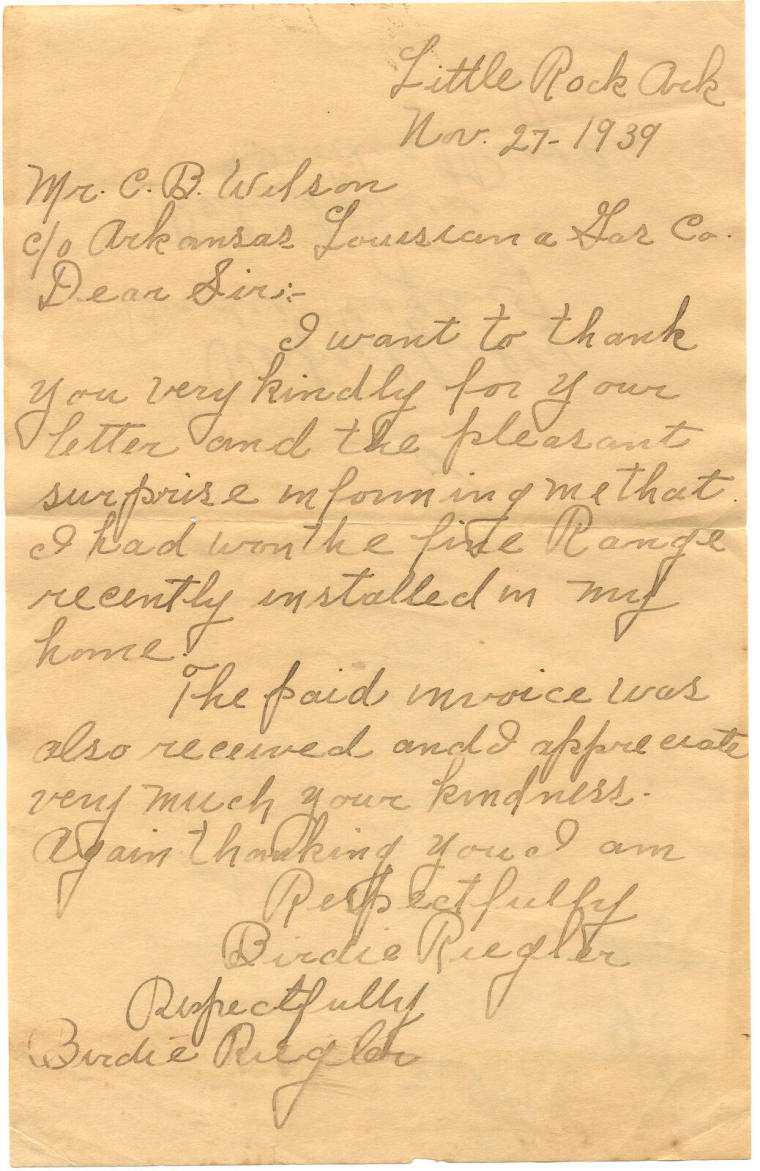 Little Rock Ark
Nov. 27-1939
Mr. C. B. Wilson
c/o Arkansas Louisiana Gas Co.
Dear Sir:-
I want to thank
you very kindly for your
letter and the pleasant
surprise informing me that
I had won the fine Range
recently installed in my
home.
The paid invoice was
also received and I appreciate
very much your kindness.
Again thanking you I am
Respectfully
Birdie Riegler
Respectfully
Birdie Riegler